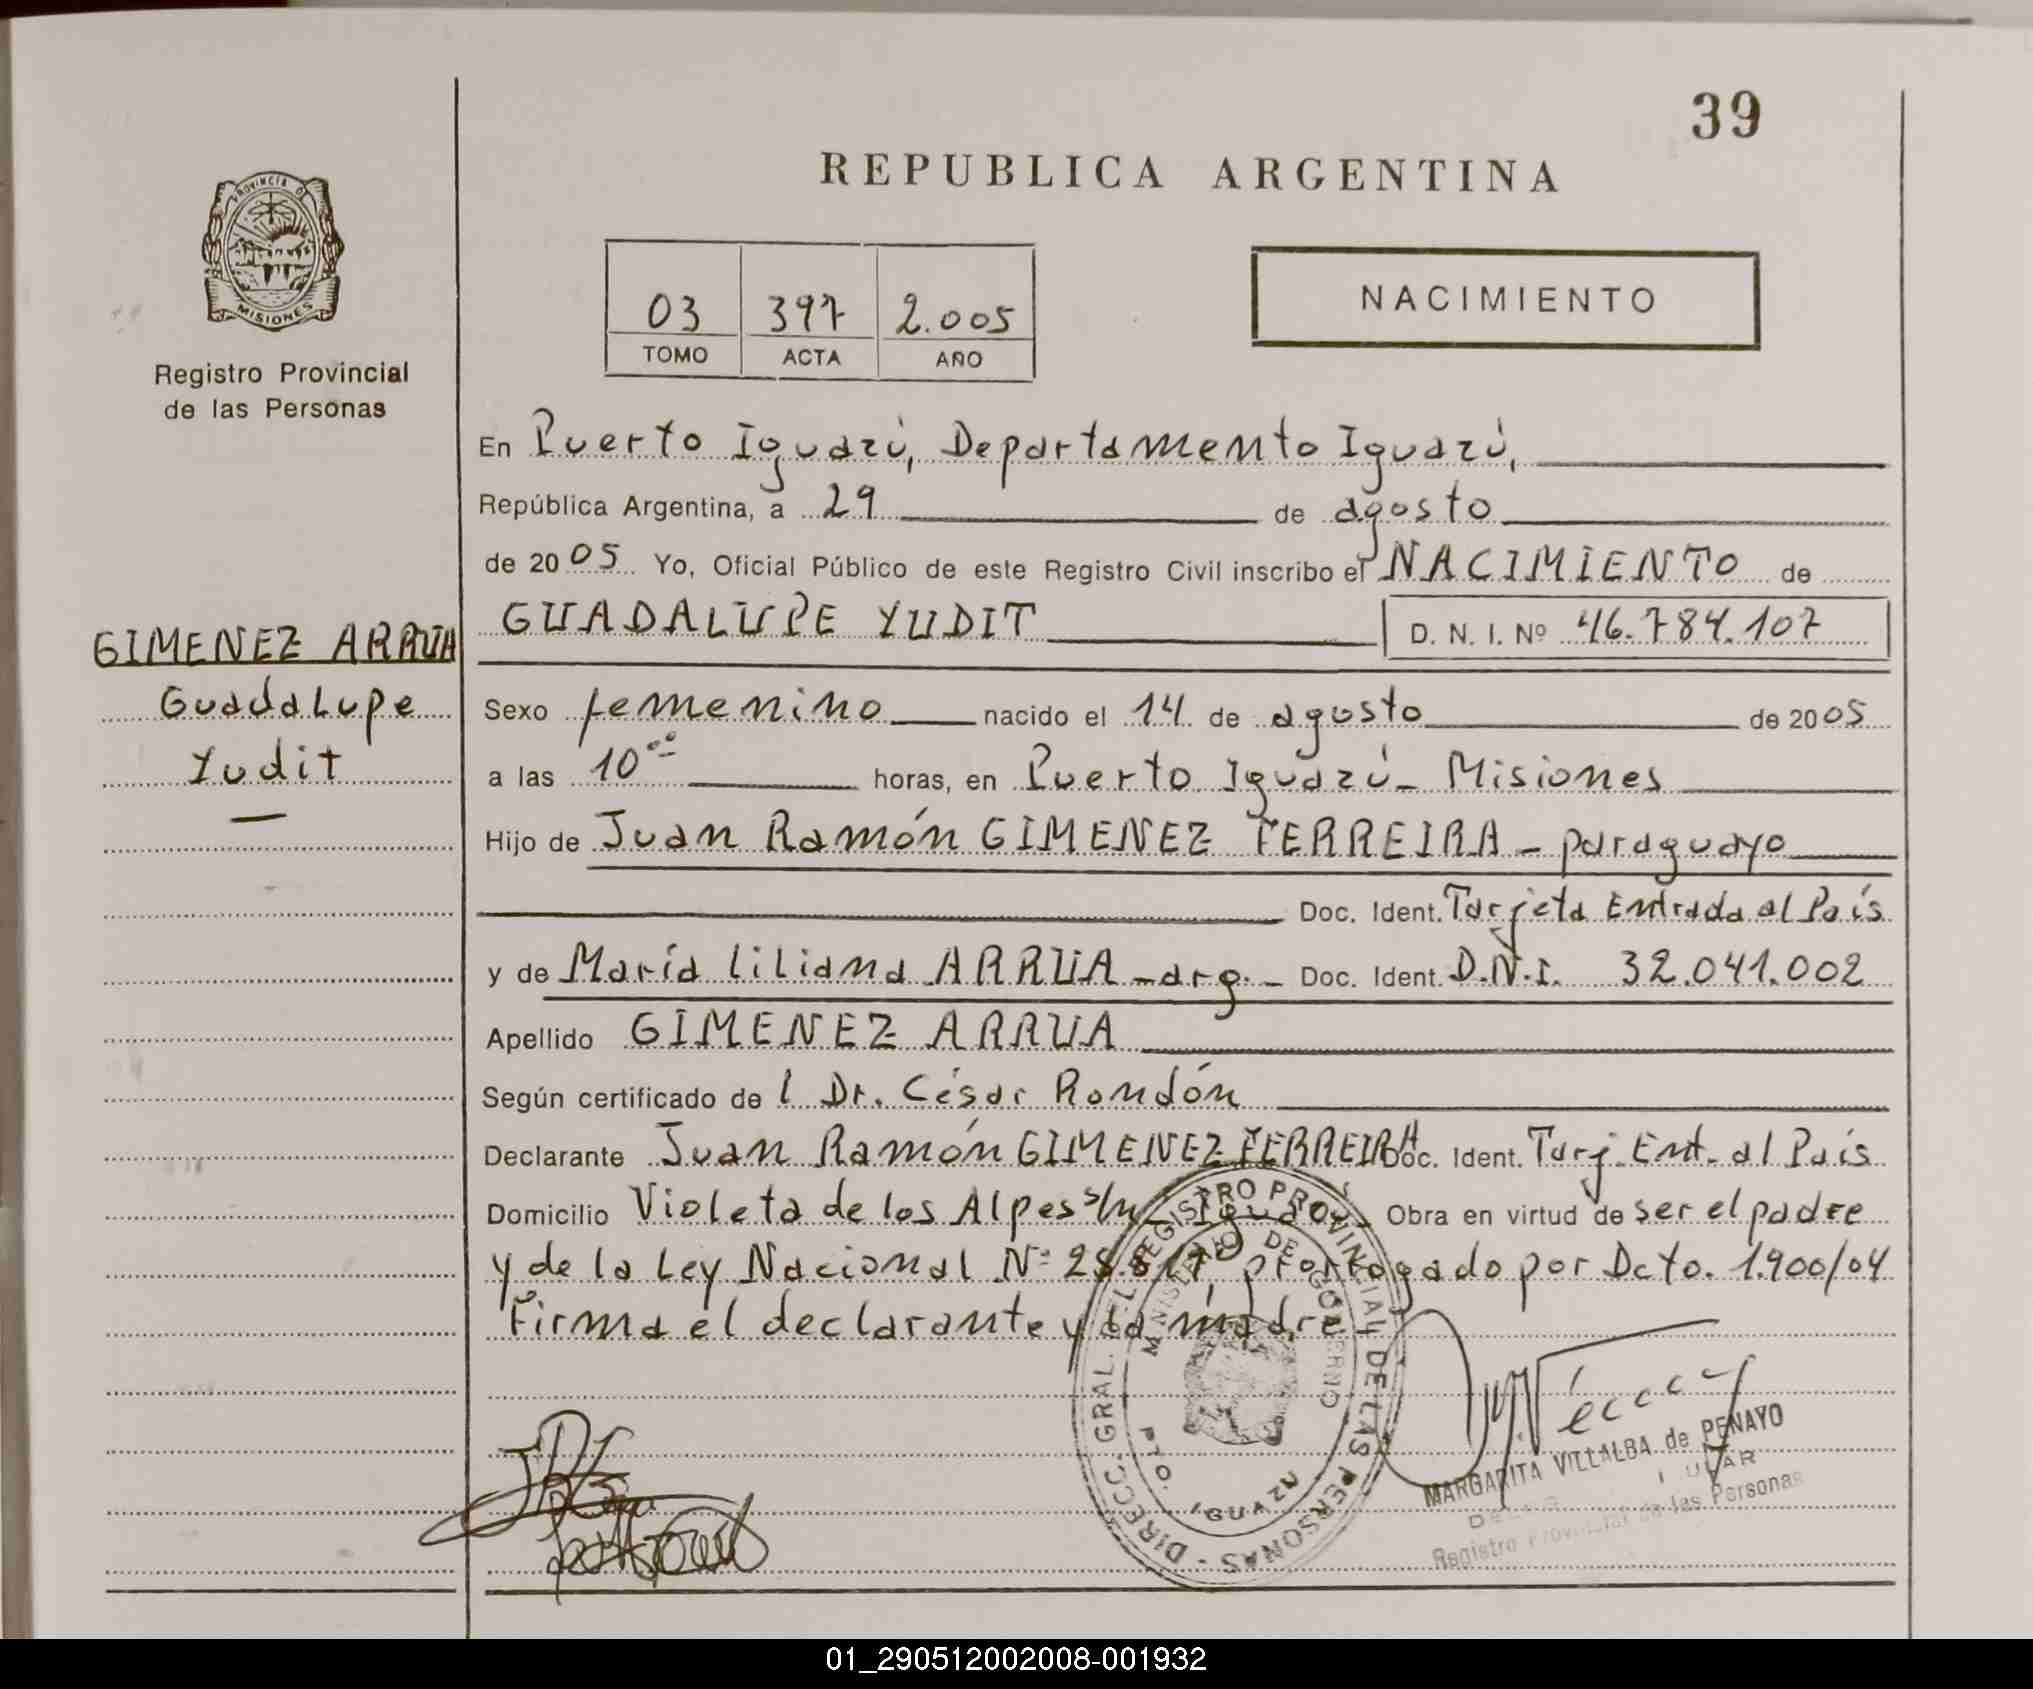 39
REPUBLICA ARGENTINA
PROVINCIA D
MISIONES
Registro Provincial
de las Personas
03 397 2.005
TOMO ACTA AÑO
NACIMIENTO
En Puerto Iguazú, Departamento Iguazú,
República Argentina, a 29 de agosto
de 2005 Yo, Oficial Público de este Registro Civil inscribo el NACIMIENTO de
GIMENEZ ARRUA
Guadalupe
Yudit
GUADALUPE YUDIT D. N. I. Nº 46.784.107
Sexo femenino nacido el 14 de agosto de 2005
a las 10 oo horas, en Puerto Iguazú - Misiones
Hijo de Juan Ramón GIMENEZ FERREIRA - paraguayo
Doc. Ident. Tarjeta Entrada al País
y de María Liliana ARRUA - arg. - Doc. Ident. D.N.I. 32.041.002
Apellido GIMENEZ ARRUA
Según certificado de l Dr. César Rondón
Declarante Juan Ramón GIMENEZ FERREIRA Doc. Ident. Tarj. Ent. al País
Domicilio Violeta de los Alpes s/n - Iguazú - Obra en virtud de ser el padre
y de la Ley Nacional Nº 25.819 prorrogado por Dcto. 1.900/04
Firma el declarante y la madre
DIRECC. GRAL. DEL REGISTRO PROVINCIAL DE LAS PERSONAS
MINISTERIO DE GOBIERNO
PTO. IGUAZU
MARGARITA VILLALBA de PENAYO
Registro Provincial de las Personas
01_290512002008-001932